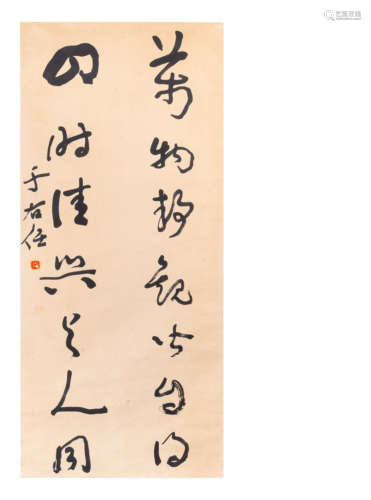 萬物靜觀皆自得
四時佳興與人同
于右任